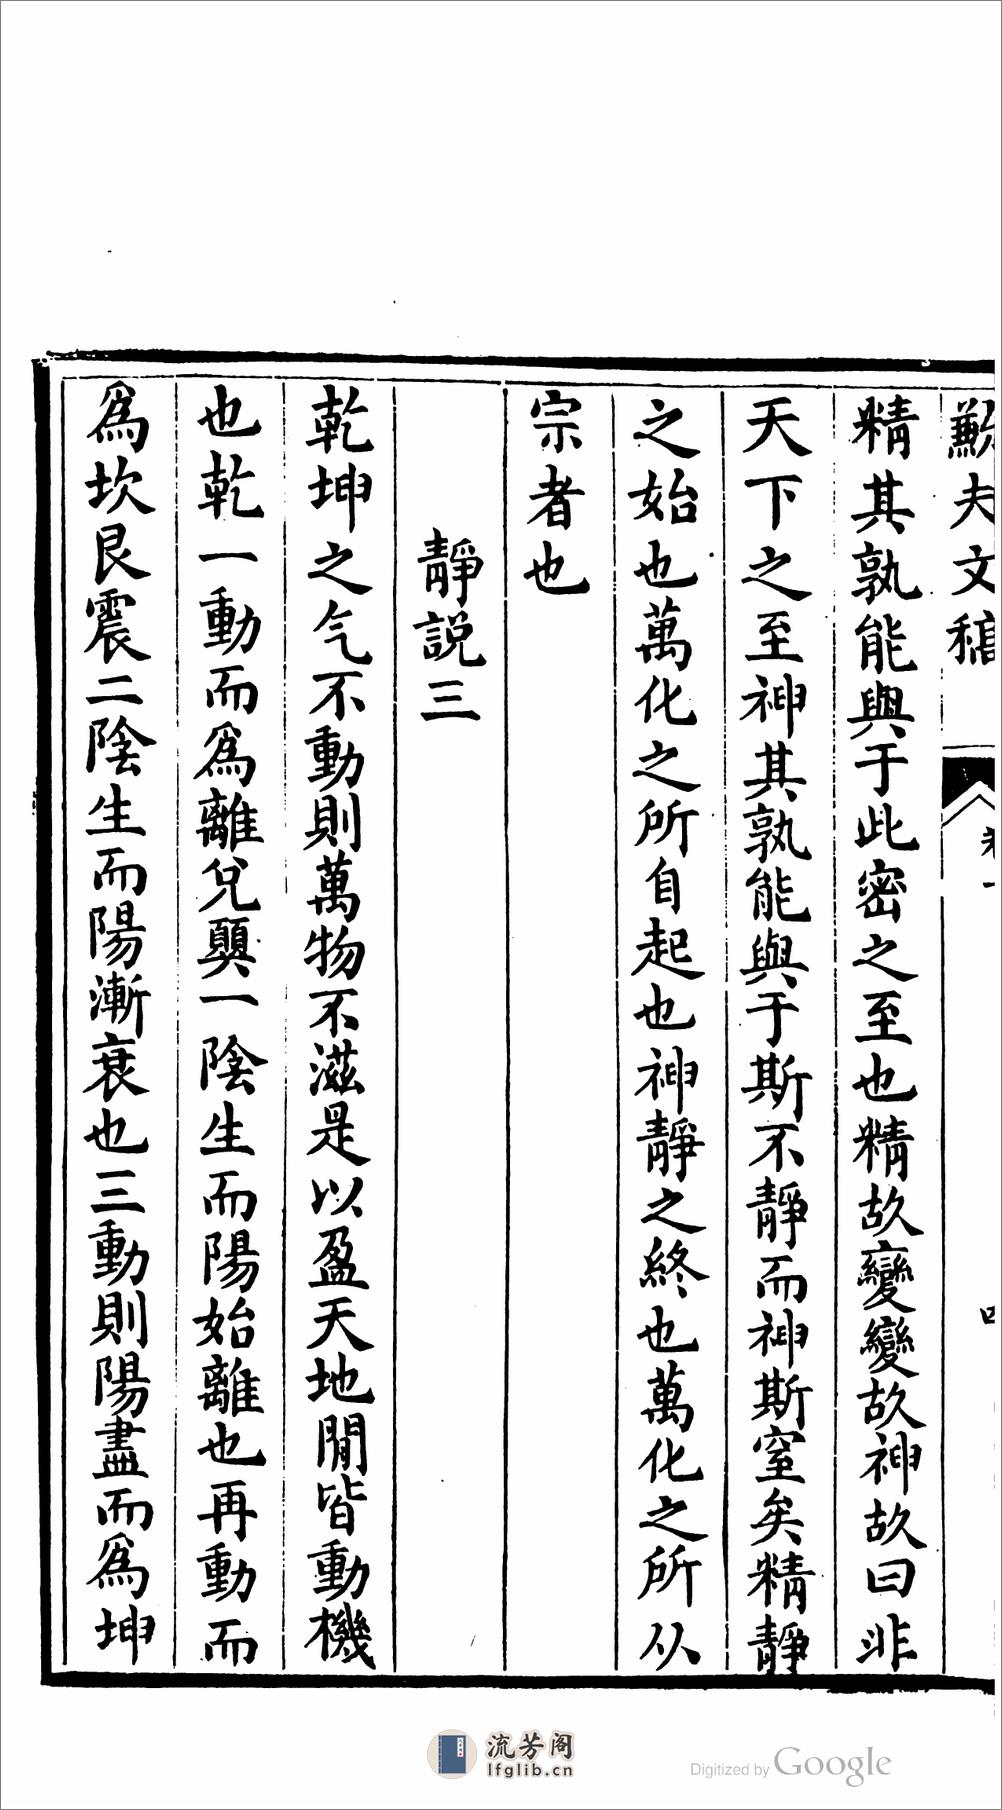 歗夫文稿 卷一 四
精其孰能與于此密之至也精故變變故神故曰非
天下之至神其孰能與于斯不靜而神斯窒矣精靜
之始也萬化之所自起也神靜之終也萬化之所从
宗者也
靜説三
乾坤之气不動則萬物不滋是以盈天地閒皆動機
也乾一動而爲離兌巽一陰生而陽始離也再動而
爲坎艮震二陰生而陽漸衰也三動則陽盡而爲坤
流芳阁
lfglib.cn
Digitized by Google